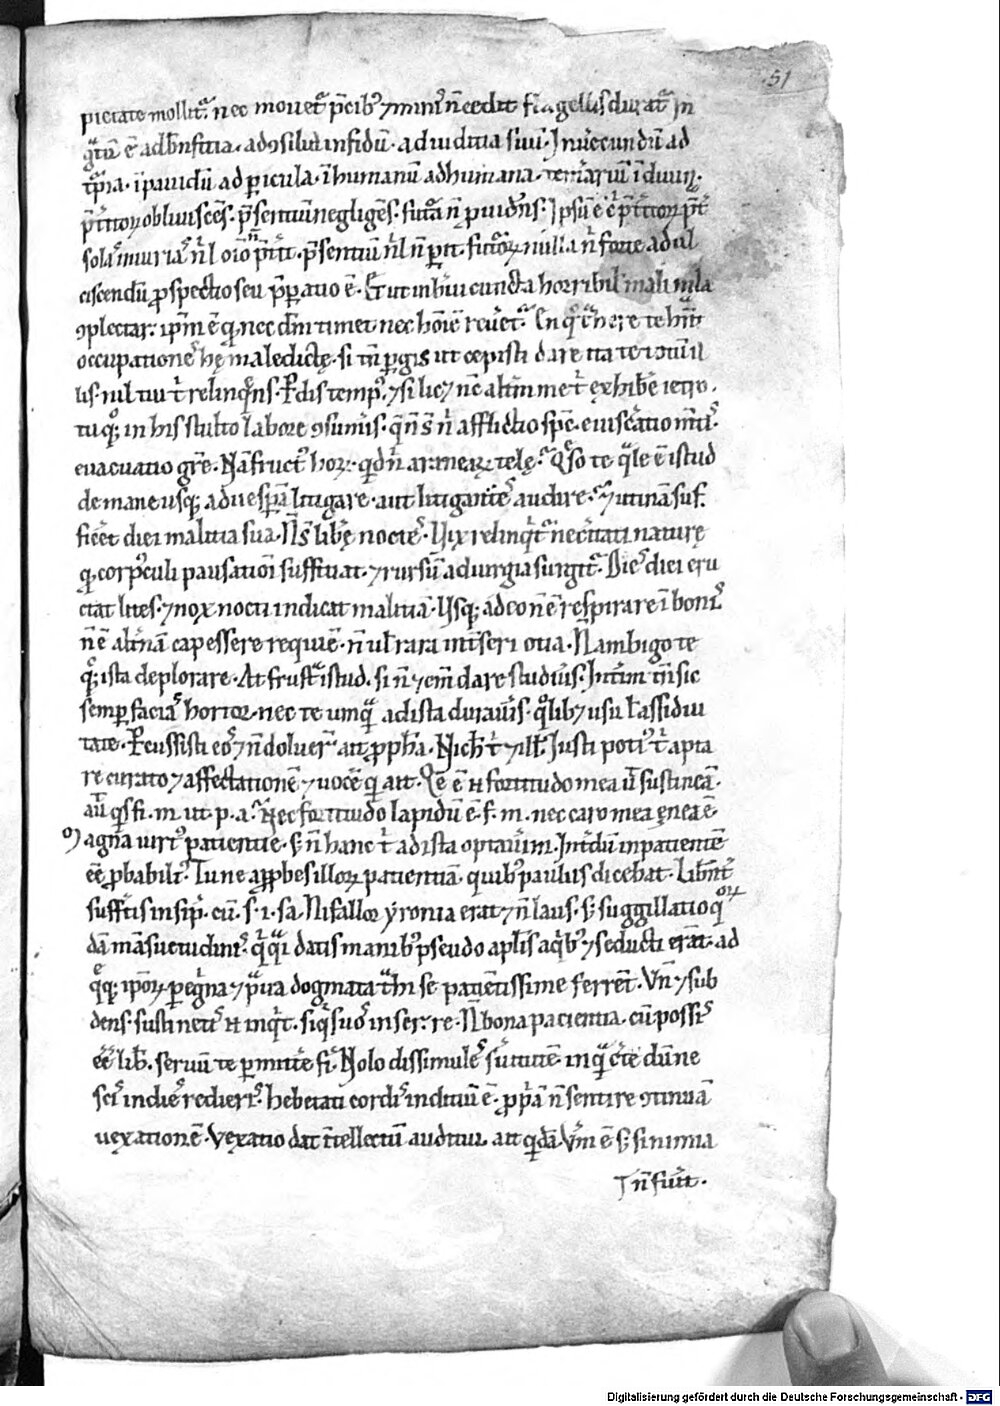 51
pietate mollit᷑. nec mouet᷑ p̄cib᷒ ⁊ minis n̄ cedit flagellis durat᷑ In
gͣtū ē ad bn̄ficia. ad ꝯsilia infidū. ad iudicia seuū. Inuecundū ad
t᷑pia. īpauidū ad ꝑicula. īhumanū ad humana. temͣariū ī diuīa.
p̄t᷑itoꝝ obliuiscēs. p̄sentiū negligēs. futͣa n̄ ꝓuidēs. Ipsū ē c̾ p̄t᷑itoꝝ p̄t̾
solas iniurias n̾l oīo n̄ p̄t᷑it. p̄sentiū n̾l n̄ ꝑit. futͦꝝ nulla n̾ forte ad ul
ciscendū ꝓspectio seu p̄ꝑatio ē. Et ut in breui cuncta horribilis mali mala
ꝯplectar: ipm̄ ē qͥ nec dm̄ timet nec hoīē reuet᷑. En qͦ t͛here te hn̄t
occupationes hę maledictę. si tn̄ ꝑgis ut cepisti dare ita te totū il
lis. nil tui t᷑ relinqͥns. ꝑdis tempꝰ. ⁊ si licꝫ nc̄ alt᷑m me t᷑ exhibe ietro.
tu qꝫ in his stulto labore ꝯsumis. qͥ n̄ st̄ n̾ afflictio spc̄. euisceratio m̄tis.
euacuatio grē. Nā fruct᷒ hoꝝ: qͥd n̾ aranearꝝ telę. Qͦso te qͣle ē istud
de mane usqꝫ ad uesꝑā litigare. aut litigantes audire. ⁊ utinā suf
ficet diei malicia sua. N̄ st̄ liberę noctes. Uix relinqͥt᷑ necessitati naturę
qͥ corpͦculi pausationi sufficiat. ⁊ rursū ad iurgia surgit᷑. Dies diei eru
ctat lites. ⁊ nox nocti indicat maliciā. Usqꝫ adeo n̄ ē respirare ī bonis
n̄ ē alt᷑nā capessere requiē. n̄ ul̄ rara int᷑seri ocia. N̄ ambigo te
qͦqꝫ ista deplorare. At frustͣ istud. si n̄ ⁊ emdare studueris. Int᷑im tn̄ sic
semꝑ facias hortor. nec te umqͣ ad ista duraueris. qͦlibꝫ usu ul̄ assidui
tate. Ꝑcussisti eos ⁊ n̄ doluer̄ ait ꝓpha. Nichil t᷑ ⁊ illis. Iusti potiꝰ t᷑ apta
re curato ⁊ affectationē ⁊ uocē qͥ ait. Qͤ ē n̄ fortitudo mea ut sustineā.
aut qͥs fi. m. ut. p. a. Nec fortitudo lapidū ē. f. m. nec caro mea ęnea ē
Magna uirtꝰ patientie. sꝫ n̄ hanc t᷑ ad ista optauerim. Int᷑dū inpatientē
eē ꝓbabiliꝰ. Tu ne apꝓbes illoꝝ patientiā quibꝰ paulus dicebat. Libent᷑
suffertis insip̄. cū. s. i. sa. Ni fallor yronia erat ⁊ n̄ laus. sꝫ suggillatio qͦꝝ
dā mansuetudinis. qͥ qͣi datis manibꝰ pseudo apl̄is a qͥbꝰ ⁊ seducti erāt. ad
qͤqꝫ ipoꝝ ꝑegͥna ⁊ pͣua dogmata t͛hi se patiētissime ferrēt. Un̄ ⁊ sub
dens. sustinetis n̄ inqͥt. si qͥs uos in ser. re. N̄ bona paciencia. cū possis
eē lib̄. seruū te ꝑmitte fi. Nolo dissimules s͛uitutē in qͣ c͛te dū ne
scis in dies redigeris. hebetati cordis indiciū ē. ꝓpͥā n̄ sentire ꝯtinuā
uexationē. Vexatio dat ītellectū auditui. ait qͥdā. Ver̄ ē sꝫ si nimia
n̄ fuerit.
Digitalisierung gefördert durch die Deutsche Forschungsgemeinschaft - DFG